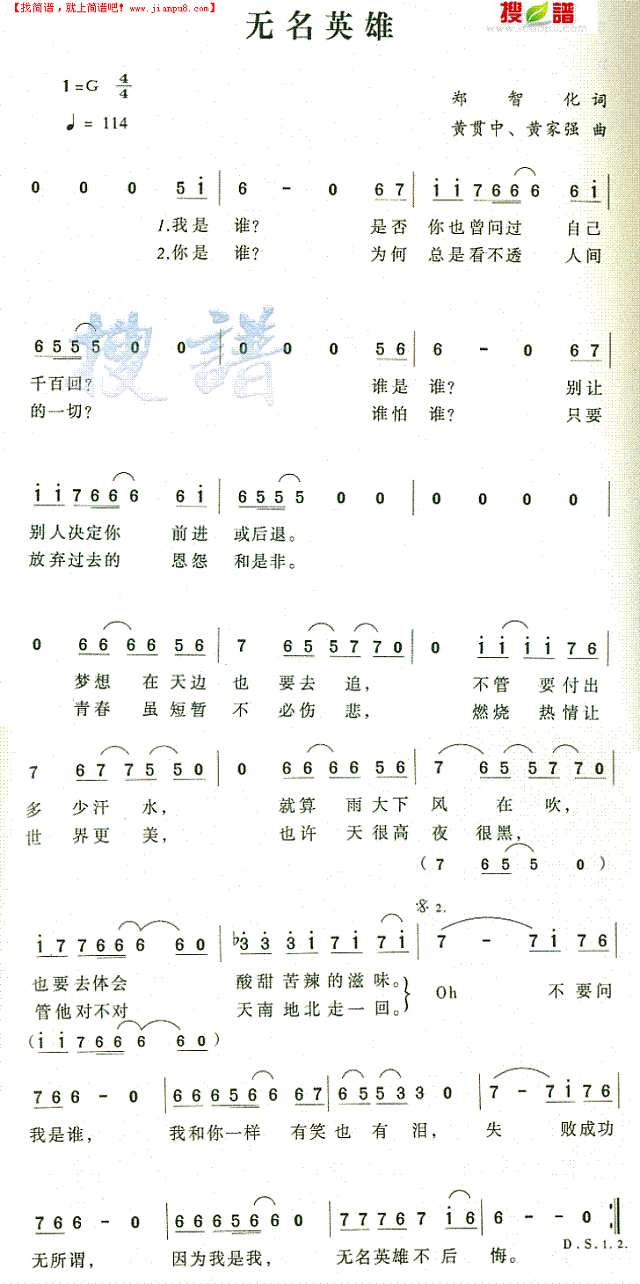 【找简谱，就上简谱吧！www.jianpu8.com】
搜谱
无名英雄
1=G 4/4
♩= 114
郑 智 化 词
黄贯中、黄家强 曲
0 0 0 5 i | 6 - 0 6 7 | i i 7 6 6 6 6 i |
1.我是 谁? 是否 你也曾问过 自己
2.你是 谁? 为何 总是看不透 人间
搜谱
6 5 5 5 0 0 | 0 0 0 5 6 | 6 - 0 6 7 |
千百回? 谁是 谁? 别让
的一切? 谁怕 谁? 只要
i i 7 6 6 6 6 i | 6 5 5 5 0 0 0 | 0 0 0 0 |
别人决定你 前进 或后退。
放弃过去的 恩怨 和是非。
0 6 6 6 6 5 6 | 7 6 5 5 7 7 0 | 0 i i i i 7 6 |
梦想 在天边 也 要去 追， 不管 要付出
青春 虽短暂 不 必伤 悲， 燃烧 热情让
7 6 7 7 5 5 0 | 0 6 6 6 6 5 6 | 7 6 5 5 7 7 0 |
多 少汗 水， 就算 雨大下 风 在 吹，
世 界更 美， 也许 天很高 夜 很黑，
( 7 6 5 5 0 )
i 7 7 6 6 6 6 0 | ♭3 3 3 i 7 i 7 i | 2. 7 - 7 i 7 6 |
也要去体会 酸甜 苦辣的滋味。 Oh 不要问
管他对不对 天南 地北走一回。
( i i 7 6 6 6 6 0 )
7 6 6 - 0 | 6 6 6 5 6 6 6 7 | 6 5 5 3 3 0 | 7 - 7 i 7 6 |
我是谁， 我和你一样 有笑 也 有 泪， 失 败成功
7 6 6 - 0 | 6 6 6 5 6 6 0 | 7 7 7 6 7 7 i 6 | 6 - - 0 :||
无所谓， 因为我是我， 无名英雄不 后 悔。
D.S.1.2.